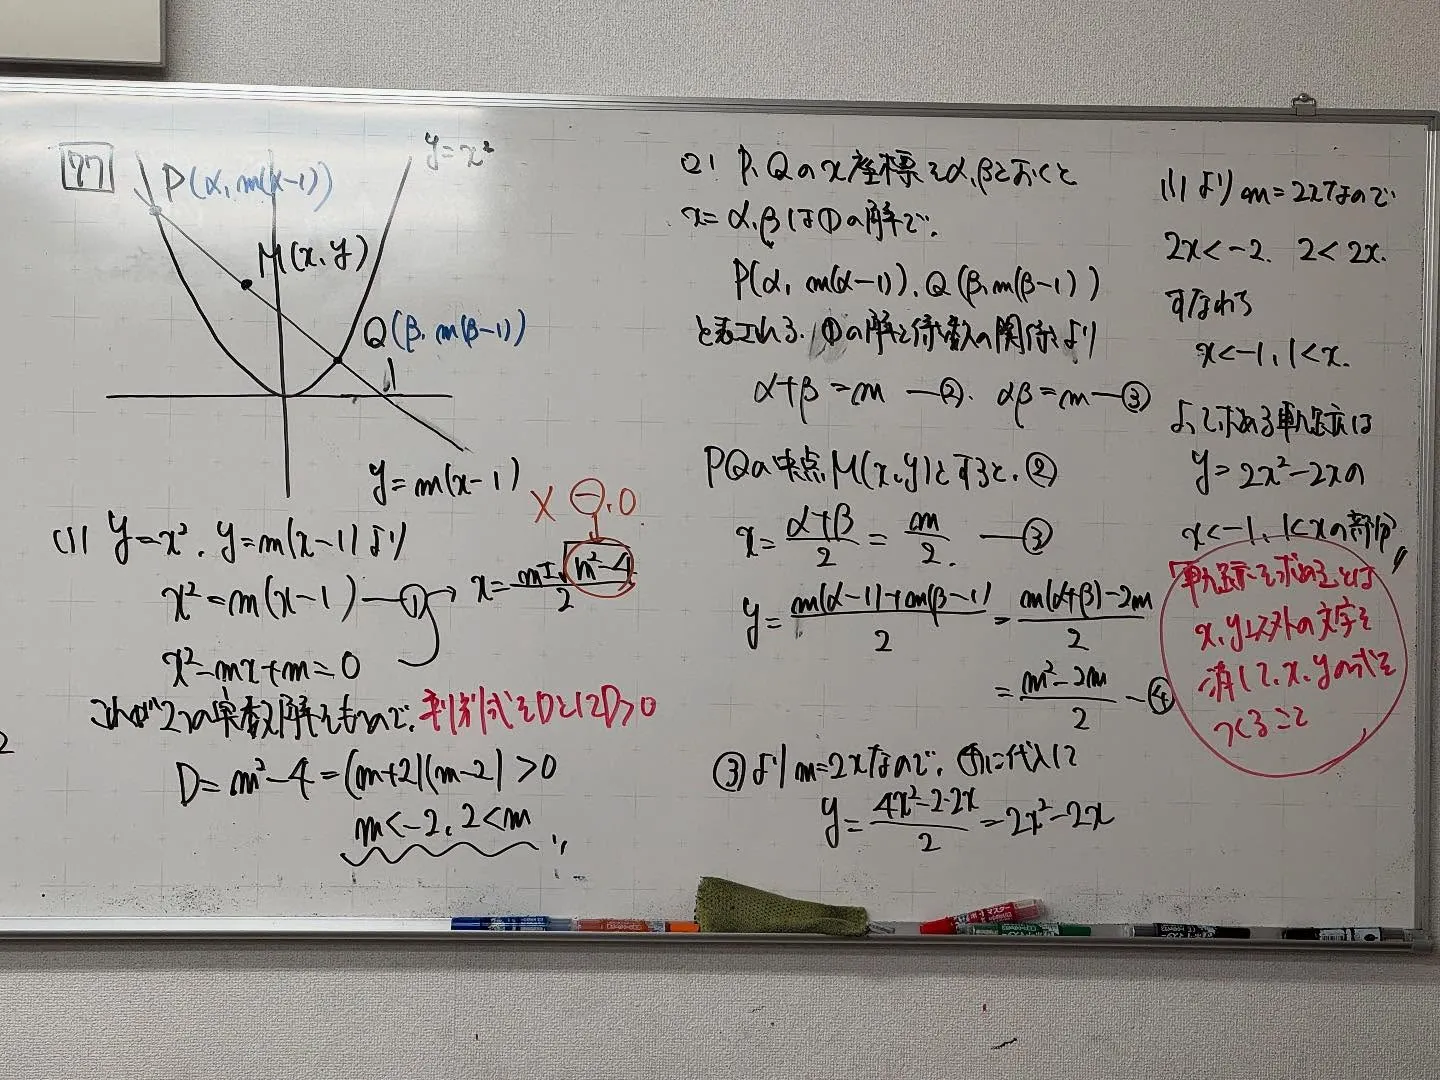 77
y=x²
P(α, m(α-1))
M(x, y)
Q(β, m(β-1))
1
y=m(x-1)
(1) y=x², y=m(x-1)より
x²=m(x-1) ―①
x²-mx+m=0
x=(m±√(m²-4))/2
× ⊖, 0
これが2つの実数解をもつので、判別式をDとしてD>0
D=m²-4=(m+2)(m-2)>0
m<-2, 2<m 〃
(2) P, Qのx座標をα, βとおくと
x=α, βは①の解で、
P(α, m(α-1)), Q(β, m(β-1))
と表される. ①の解と係数の関係より
α+β=m ―②, αβ=m ―③
PQの中点M(x, y)とすると, ②
x=(α+β)/2=m/2. ―③
y=(m(α-1)+m(β-1))/2=(m(α+β)-2m)/2
=(m²-2m)/2 ―④
③よりm=2xなので, ④に代入して
y=(4x²-2・2x)/2=2x²-2x
(1)より m=2xなので
2x<-2, 2<2x.
すなわち
x<-1, 1<x.
よって求める軌跡は
y=2x²-2xの
x<-1, 1<xの部分〃
「軌跡を求める」とは
x, y以外の文字を
消して, x, yの式を
つくること
2